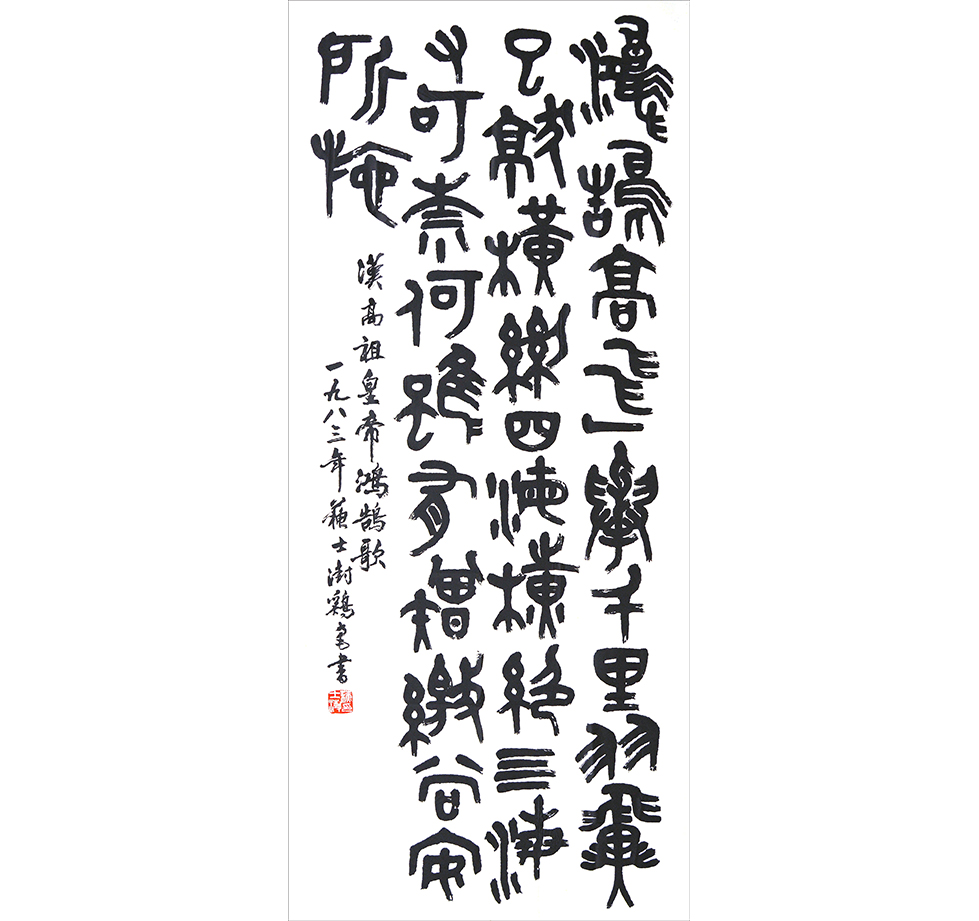 鴻鵠高飛一舉千里羽翼
已就橫絕四海橫絕四海
又可奈何雖有矰繳尚安
所施
漢高祖皇帝鴻鵠歌
一九八三年蘇士澍書